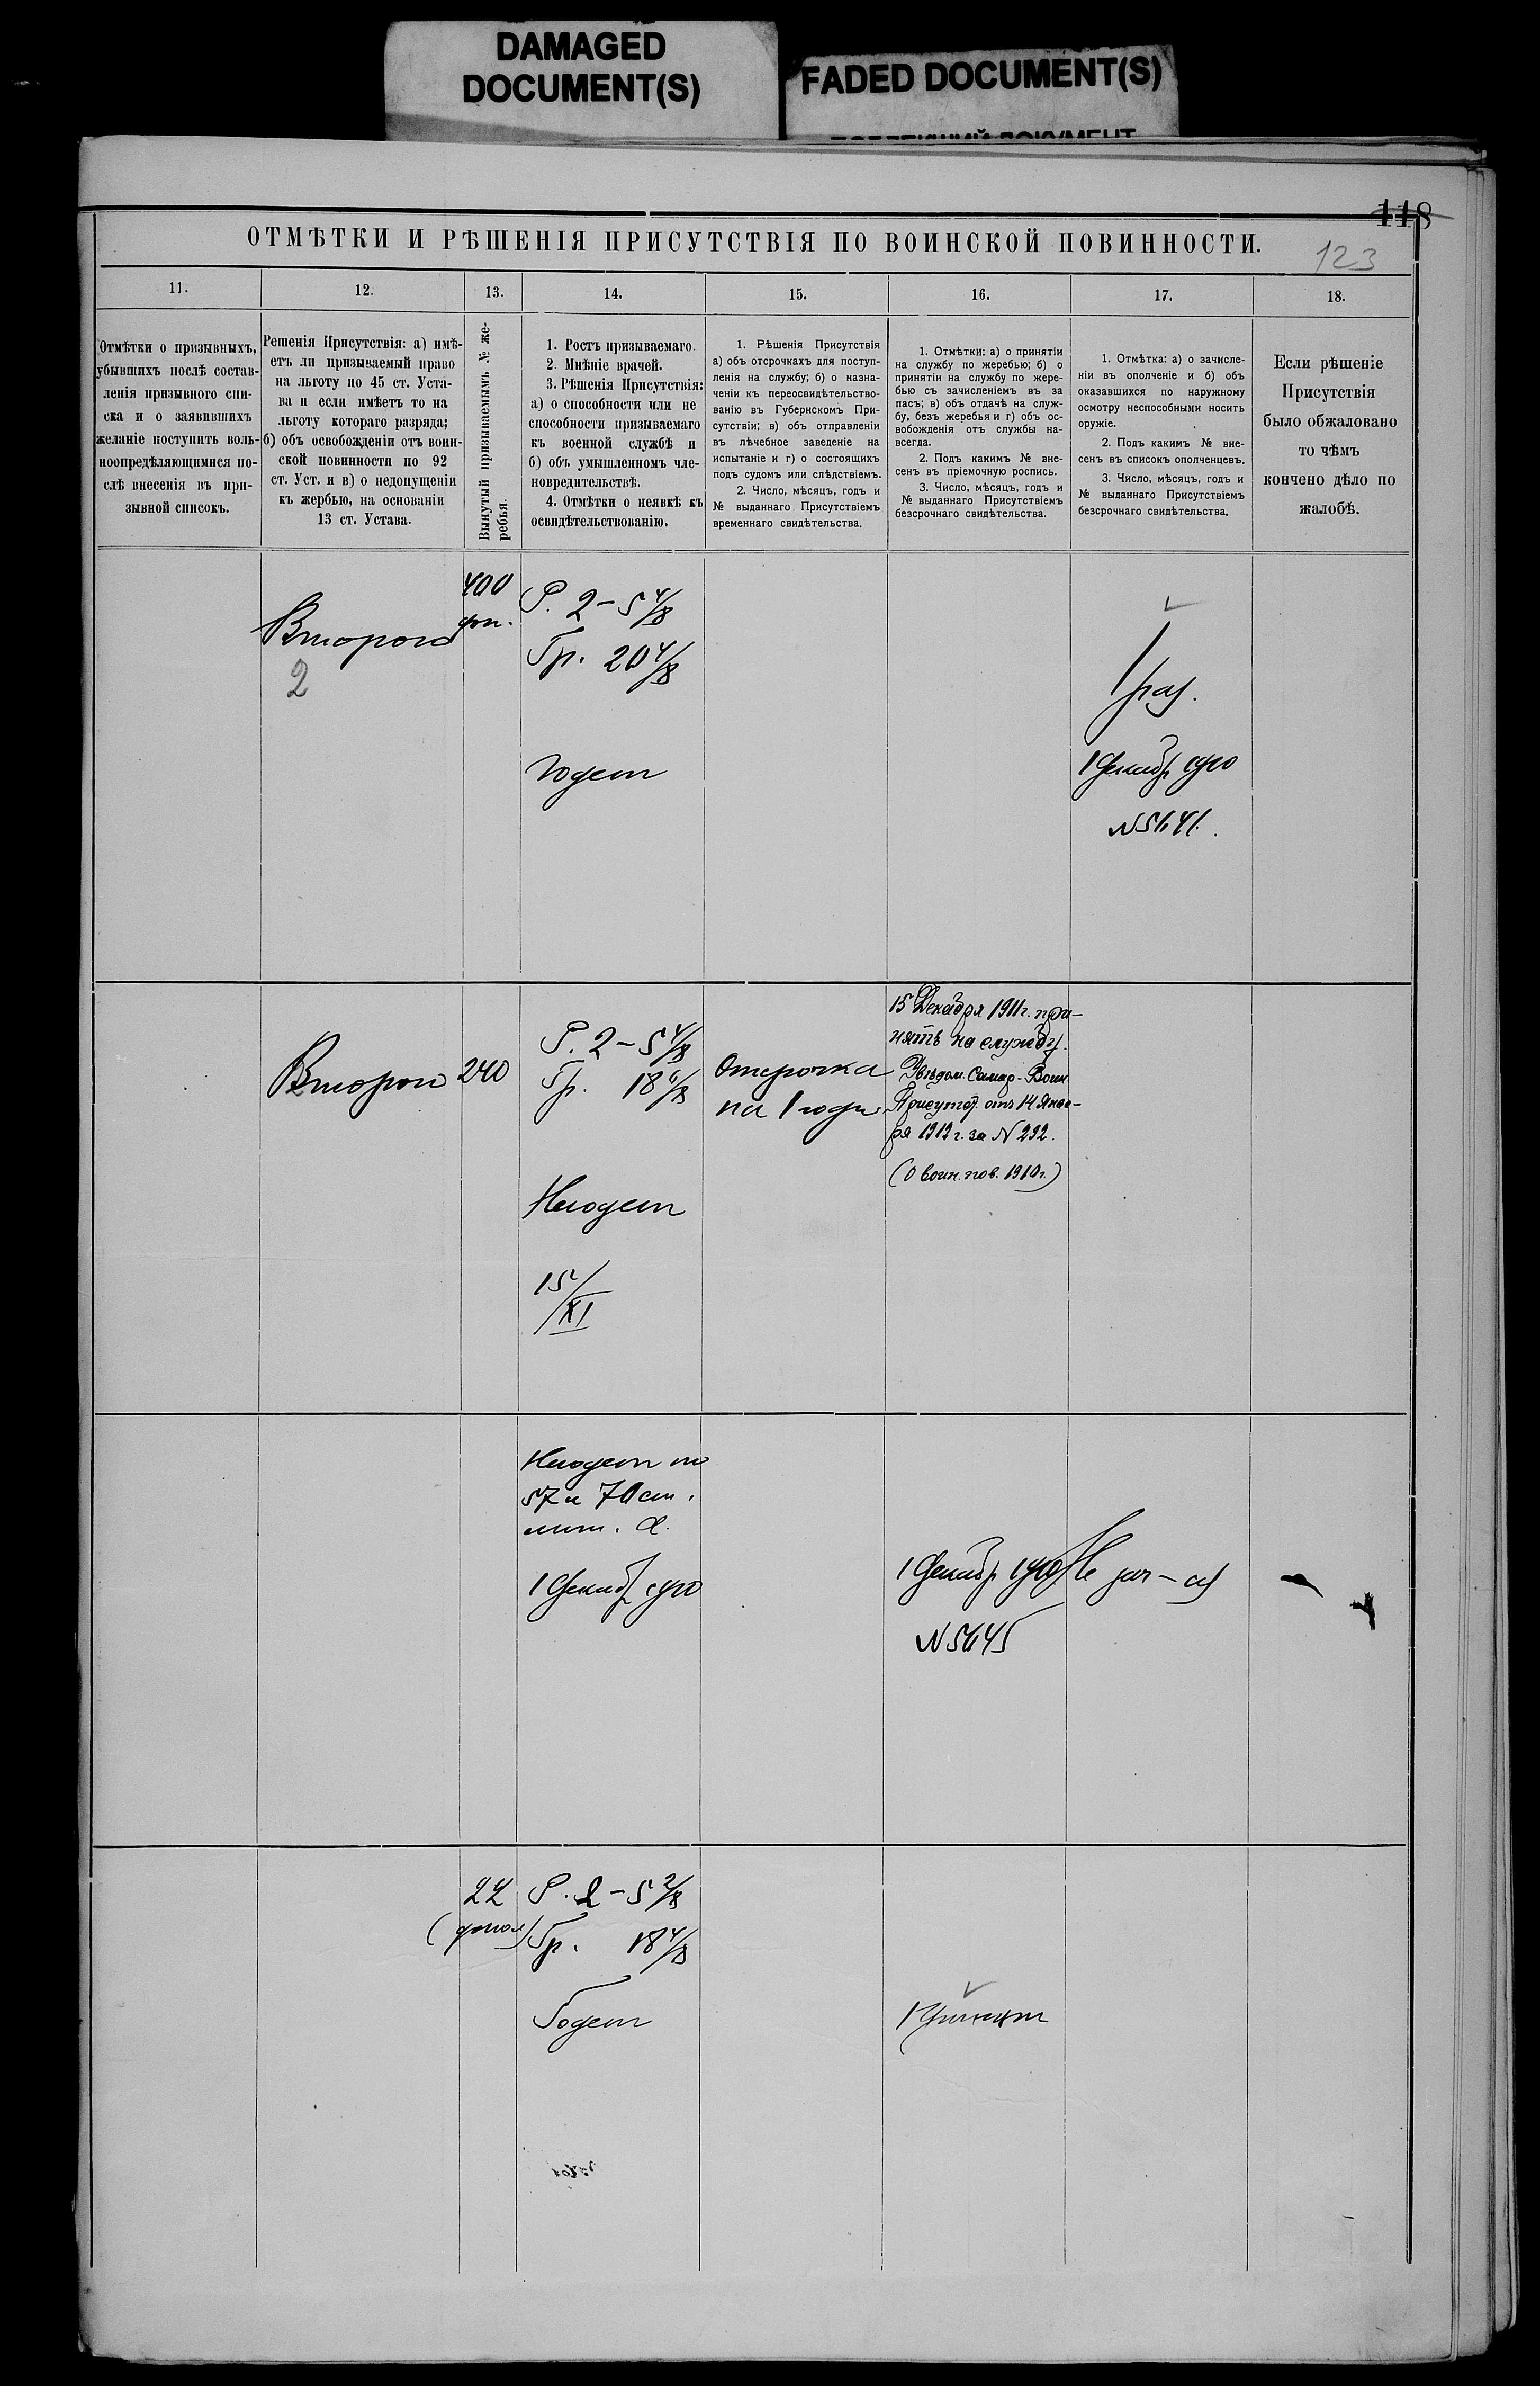 DAMAGED
DOCUMENT(S)
FADED DOCUMENT(S)
118
ОТМѢТКИ И РѢШЕНІЯ ПРИСУТСТВІЯ ПО ВОИНСКОЙ ПОВИННОСТИ.
123
11.
12.
13.
14.
15.
16.
17.
18.
Отмѣтки о призывныхъ,
убывшихъ послѣ состав-
ленія призывного спи-
ска и о заявившихъ
желаніе поступить воль-
ноопредѣляющимися по-
слѣ внесенія въ при-
зывной списокъ.
Решенія Присутствія: а) имѣ-
етъ ли призываемый право
на льготу по 45 ст. Уста-
ва и если имѣетъ то на
льготу котораго разряда;
б) объ освобожденіи отъ воин-
ской повинности по 92
ст. Уст. и в) о недопущеніи
къ жербью, на основаніи
13 ст. Устава.
Вынутый призываемымъ № же-
ребья.
1. Ростъ призываемаго.
2. Мнѣніе врачей.
3. Рѣшенія Присутствія:
а) о способности или не
способности призываемаго
къ военной службѣ и
б) объ умышленномъ чле-
новредительствѣ.
4. Отмѣтки о неявкѣ къ
освидѣтельствованію.
1. Рѣшенія Присутствія
а) объ отсрочкахъ для поступ-
ленія на службу; б) о назна-
ченіи къ переосвидѣтельство-
ванію въ Губернскомъ При-
сутствіи; в) объ отправленіи
въ лѣчебное заведеніе на
испытаніе и г) о состоящихъ
подъ судомъ или слѣдствіемъ.
2. Число, мѣсяцъ, годъ и
№ выданнаго Присутствіемъ
временнаго свидѣтельства.
1. Отмѣтки: а) о принятіи
на службу по жеребью; б) о
принятіи на службу по жере-
бью съ зачисленіемъ въ за
пасъ; в) объ отдачѣ на служ-
бу, безъ жеребья и г) объ ос-
вобожденія отъ службы на-
всегда.
2. Подъ какимъ № вне-
сенъ въ пріемочную роспись.
3. Число, мѣсяцъ, годъ и
№ выданнаго Присутствіемъ
безсрочнаго свидѣтельства.
1. Отмѣтка: а) о зачисле-
ніи въ ополченіе и б) объ
оказавшихся по наружному
осмотру неспособными носить
оружіе.
2. Подъ какимъ № вне-
сенъ въ списокъ ополченцевъ.
3. Число, мѣсяцъ, годъ и
№ выданнаго Присутствіемъ
безсрочнаго свидѣтельства.
Если рѣшеніе
Присутствія
было обжаловано
то чѣмъ
кончено дѣло по
жалобѣ.
Второго
2
400
доп.
Р. 2-5 4/8
Гр. 20 4/8
Годен
1 раз.
1 Декабр 1910
N 5641.
Второй
240
Р. 2-5 4/8
Гр. 18 6/8
Негоден
15/XI
Отсрочка
на 1 годъ
15 Декабря 1911 г. при-
нятъ на службу.
Увѣдом. Самар. Воин.
Присутст. отъ 14 Янва-
ря 1912 г. за N 292.
(О воин. пов. 1910 г.)
Негоден по
57 и 70 ст.
лит. А.
1 Декабр 1910
1 Декабр 1910
N 5645
Не зач-
22
(допол)
Р. 2-5 2/8
Гр. 18 4/8
Годен
Принят